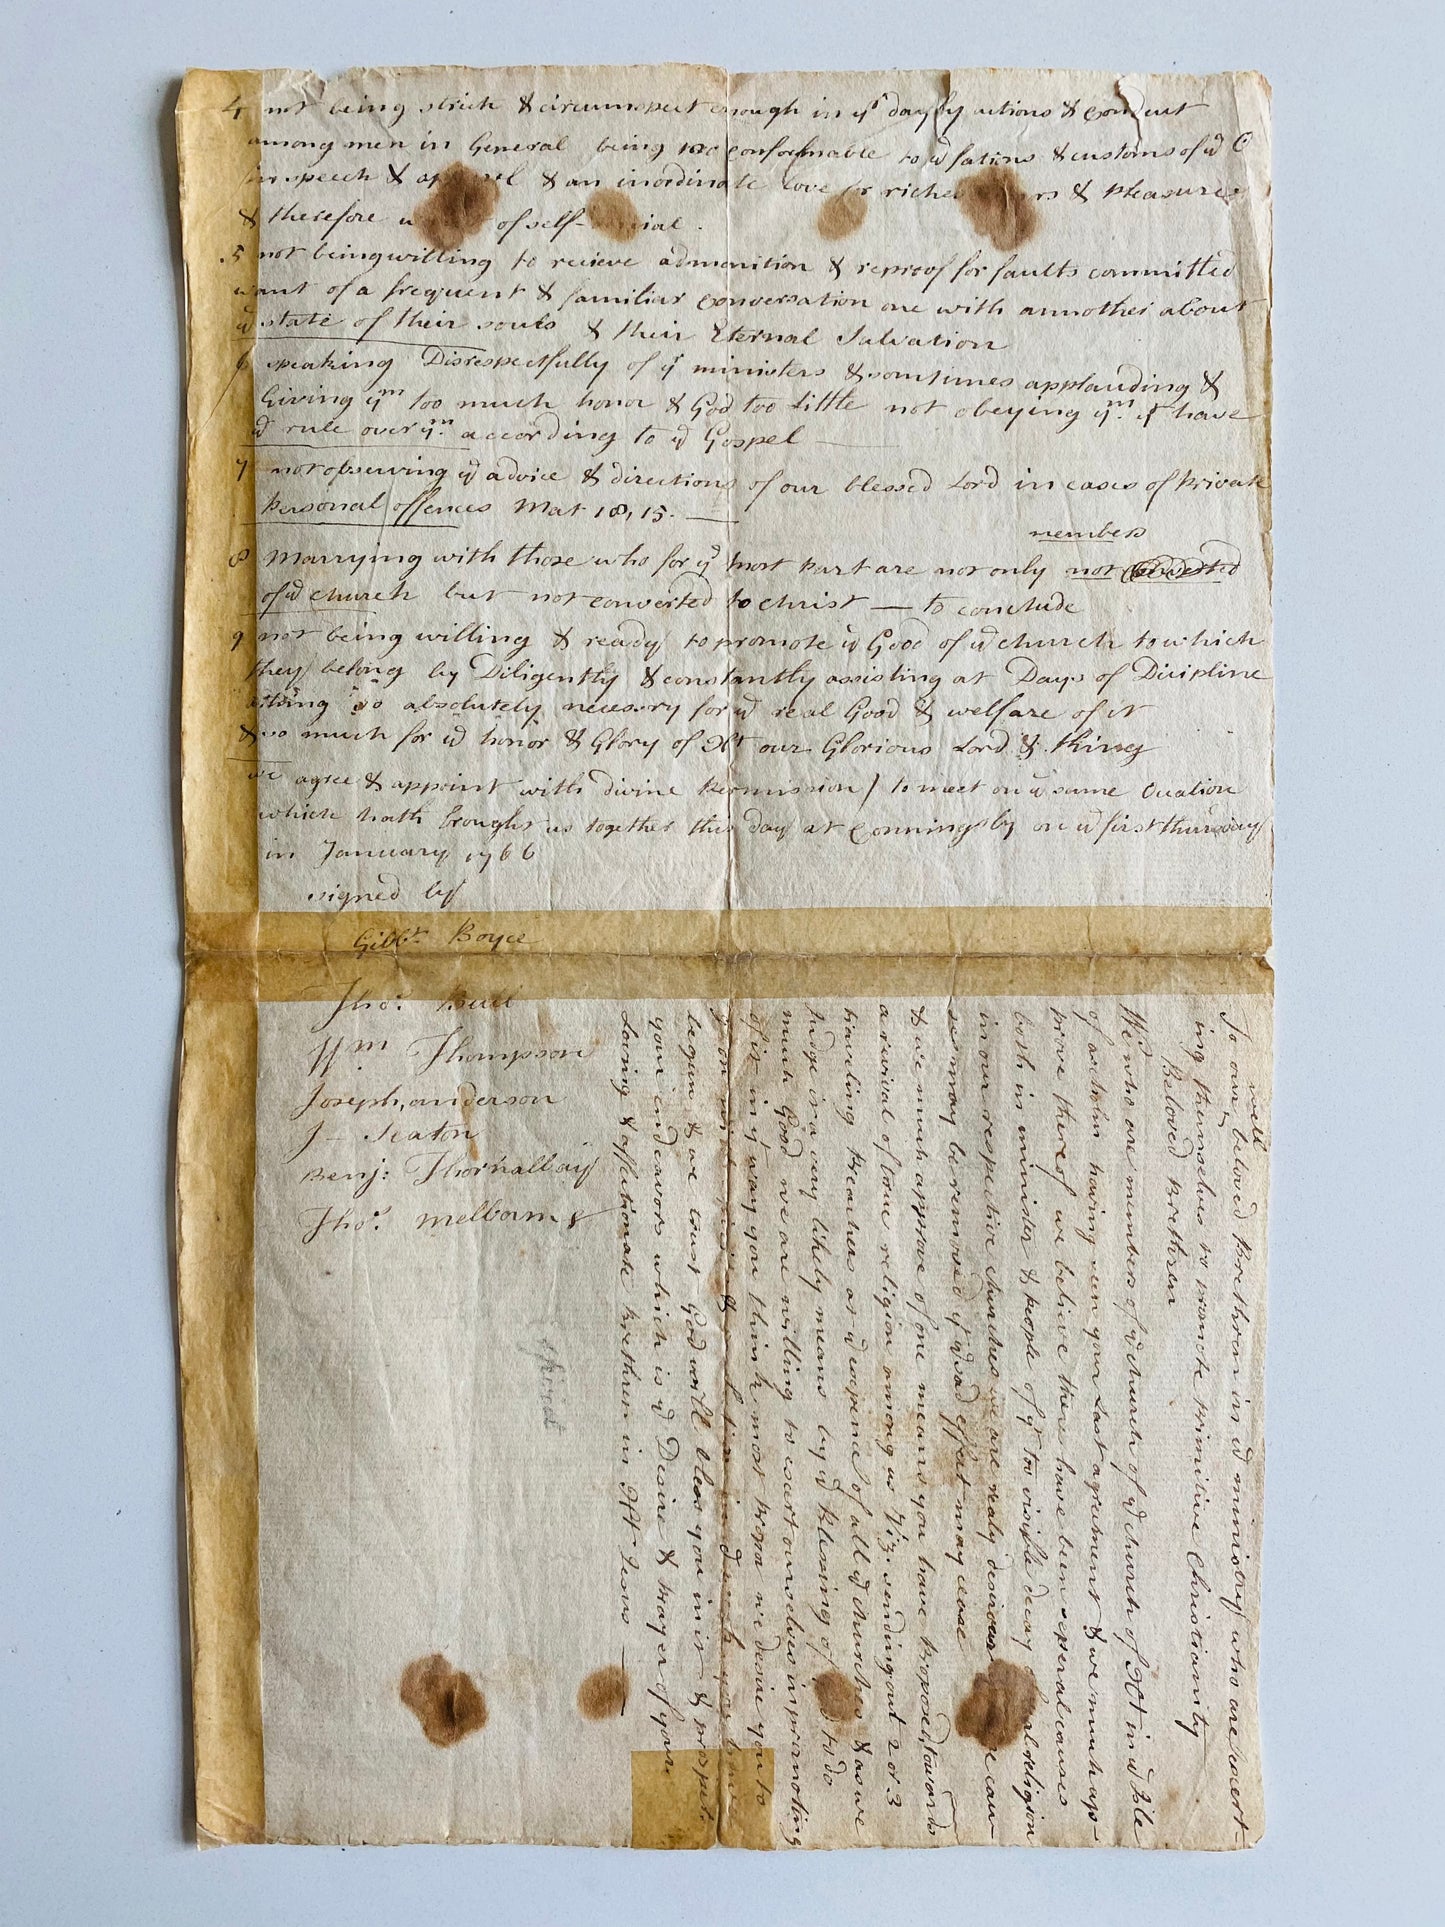 4 not being strict & circumspect enough in yr dayly actions & conduct
among men in General being too conformable to ye fations & customs of ye
in speech & & an inordinate love for riches & pleasures
& therefore of self-
5 not being willing to recieve admonition & reproof for faults committed
want of a frequent & familiar conversation one with annother about
ye state of their souls & their Eternal Salvation
6 speaking Disrespectfully of yr ministers & somtimes applauding &
Giving ym too much honor & God too little not obeying ym yt have
ye rule over ym according to ye Gospel
7 not observing ye advice & directions of our blessed Lord in cases of private
personal offences Mat 18, 15.
members
8 Marrying with those who for ye most part are not only not
of ye church but not converted to christ — to conclude
9 not being willing & ready to promote ye Good of ye church to which
they belong by Diligently & constantly assisting at Days of Dicipline
a thing so absolutely necessry for ye real Good & welfare of it
& so much for ye honor & Glory of Xt our Glorious Lord & King
we agree & appoint with divine permission / to meet on ye same
which hath brought us together this day at Conningsby on ye first thursday
in January 1766
signed by
Gilbt. Boyce
Thos. Bull
Wm Thompson
Joseph, anderson
J - Seaton
Benj: Thornally
Thos. Melbourn
well
To our beloved Brethren in ye ministry who are exert-
ing themselves to promote primitive Christianity
Beloved Brethren
We who are members of ye church of ye church of Xt in ye
of having seen your Last agreement & we much ap-
prove thereof we believe there have been several causes
both in minister & people of yt too visible decay religion
in our respective churches we are realy desirous can-
ses may be removed yt ye sad effect may cease
& we much approve of one means you have proposed, towards
a revival of true religion among us Viz. sending out 2 or 3
traveling Preachers as ye expence of all ye churches & as we
judge it a very likely means by ye Blessing of to do
much Good we are willing to exert ourselves in promoting
of it in yt way you think most proper we desire you to
begun & we trust God will bless you in it & prosper
your endeavors which is ye Desire & Prayer of your
Loving & affectionate Brethren in Xt Jesus